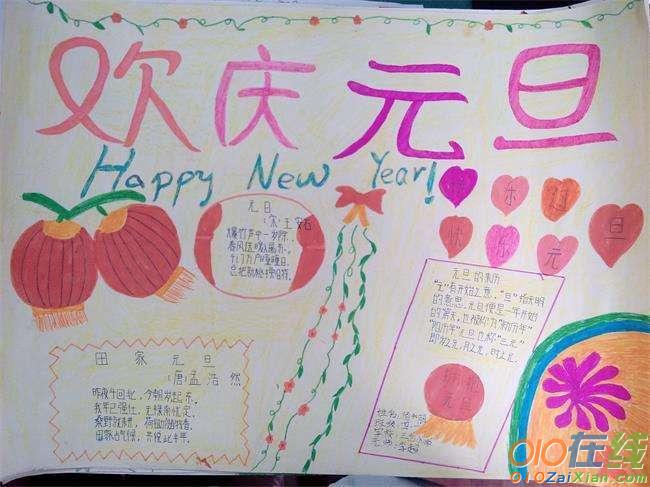 欢庆元旦
Happy New Year!
元日
(宋)王安石
爆竹声中一岁除,
春风送暖入屠苏。
千门万户曈曈日,
总把新桃换旧符。
快乐
元
旦
田家元旦
(唐)孟浩然
昨夜斗回北,今朝岁起东。
我年已强仕,无禄尚忧农。
桑野就耕,荷锄牧童。
田家占气候,共说此年丰。
元旦的来历
"元"有开始之意,"旦"指天明
的意思。元旦便是一年开始
的第一天,也被称为"新历年"
"阳历年"元旦也称"三元"
即岁之元,月之元,时之元。
姓名:
班级:
学校:
010在线
010ZaiXian.com